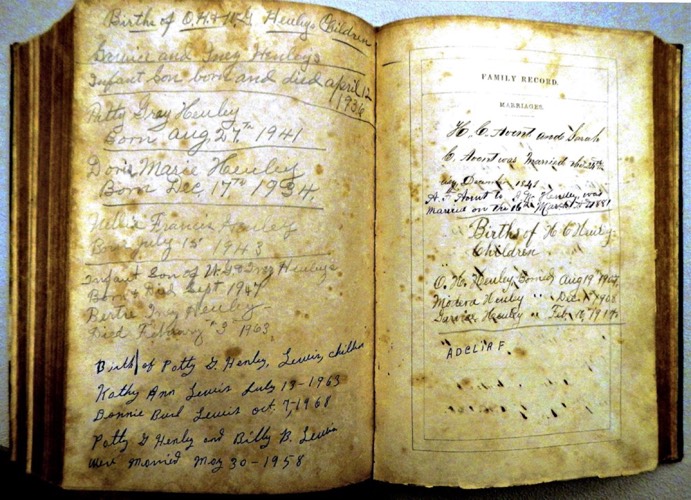 Births of O.H. & W.G Henleys Children
and Inez Henleys
Infant Son born and died april 12
1936
Patty Gray Henley
Born aug 27th 1941
Doris Marie Henley
Born Dec, 17th 1934
Francis Henley
Born July 15 1943
Infant Son of W.G & Inez Henleys
Born & Died Sept 1947
Bertie Inez Henley
Died February 3 1963
Birth of Patty G. Henley, Lewis, childern
Kathy Ann Lewis July 19-1963
Bonnie Burl Lewis oct. 7, 1968
Patty G Henley and Billy B. Lewis
were Married May 30-1958
FAMILY RECORD.
MARRIAGES.
H. C. Avent and Sarah
C. Avent was Married
December 1841
A. Avent to Henley, was
Married on the 16th March 1881
Births of H C Henley
Children
O. H. Henley, Borned Aug 19
Monera Henley " Dec
Garvie Henley " Feb 10, 191
ADELIA F